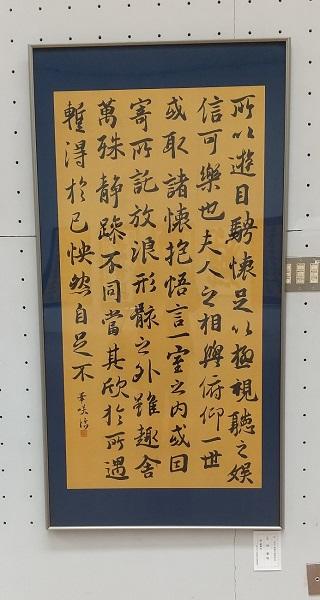 所以遊目騁懷足以極視聽之娛
信可樂也夫人之相與俯仰一世
或取諸懷抱悟言一室之内或因
寄所託放浪形骸之外雖趣舍
萬殊静躁不同當其欣於所遇
蹔得於己怏然自足不